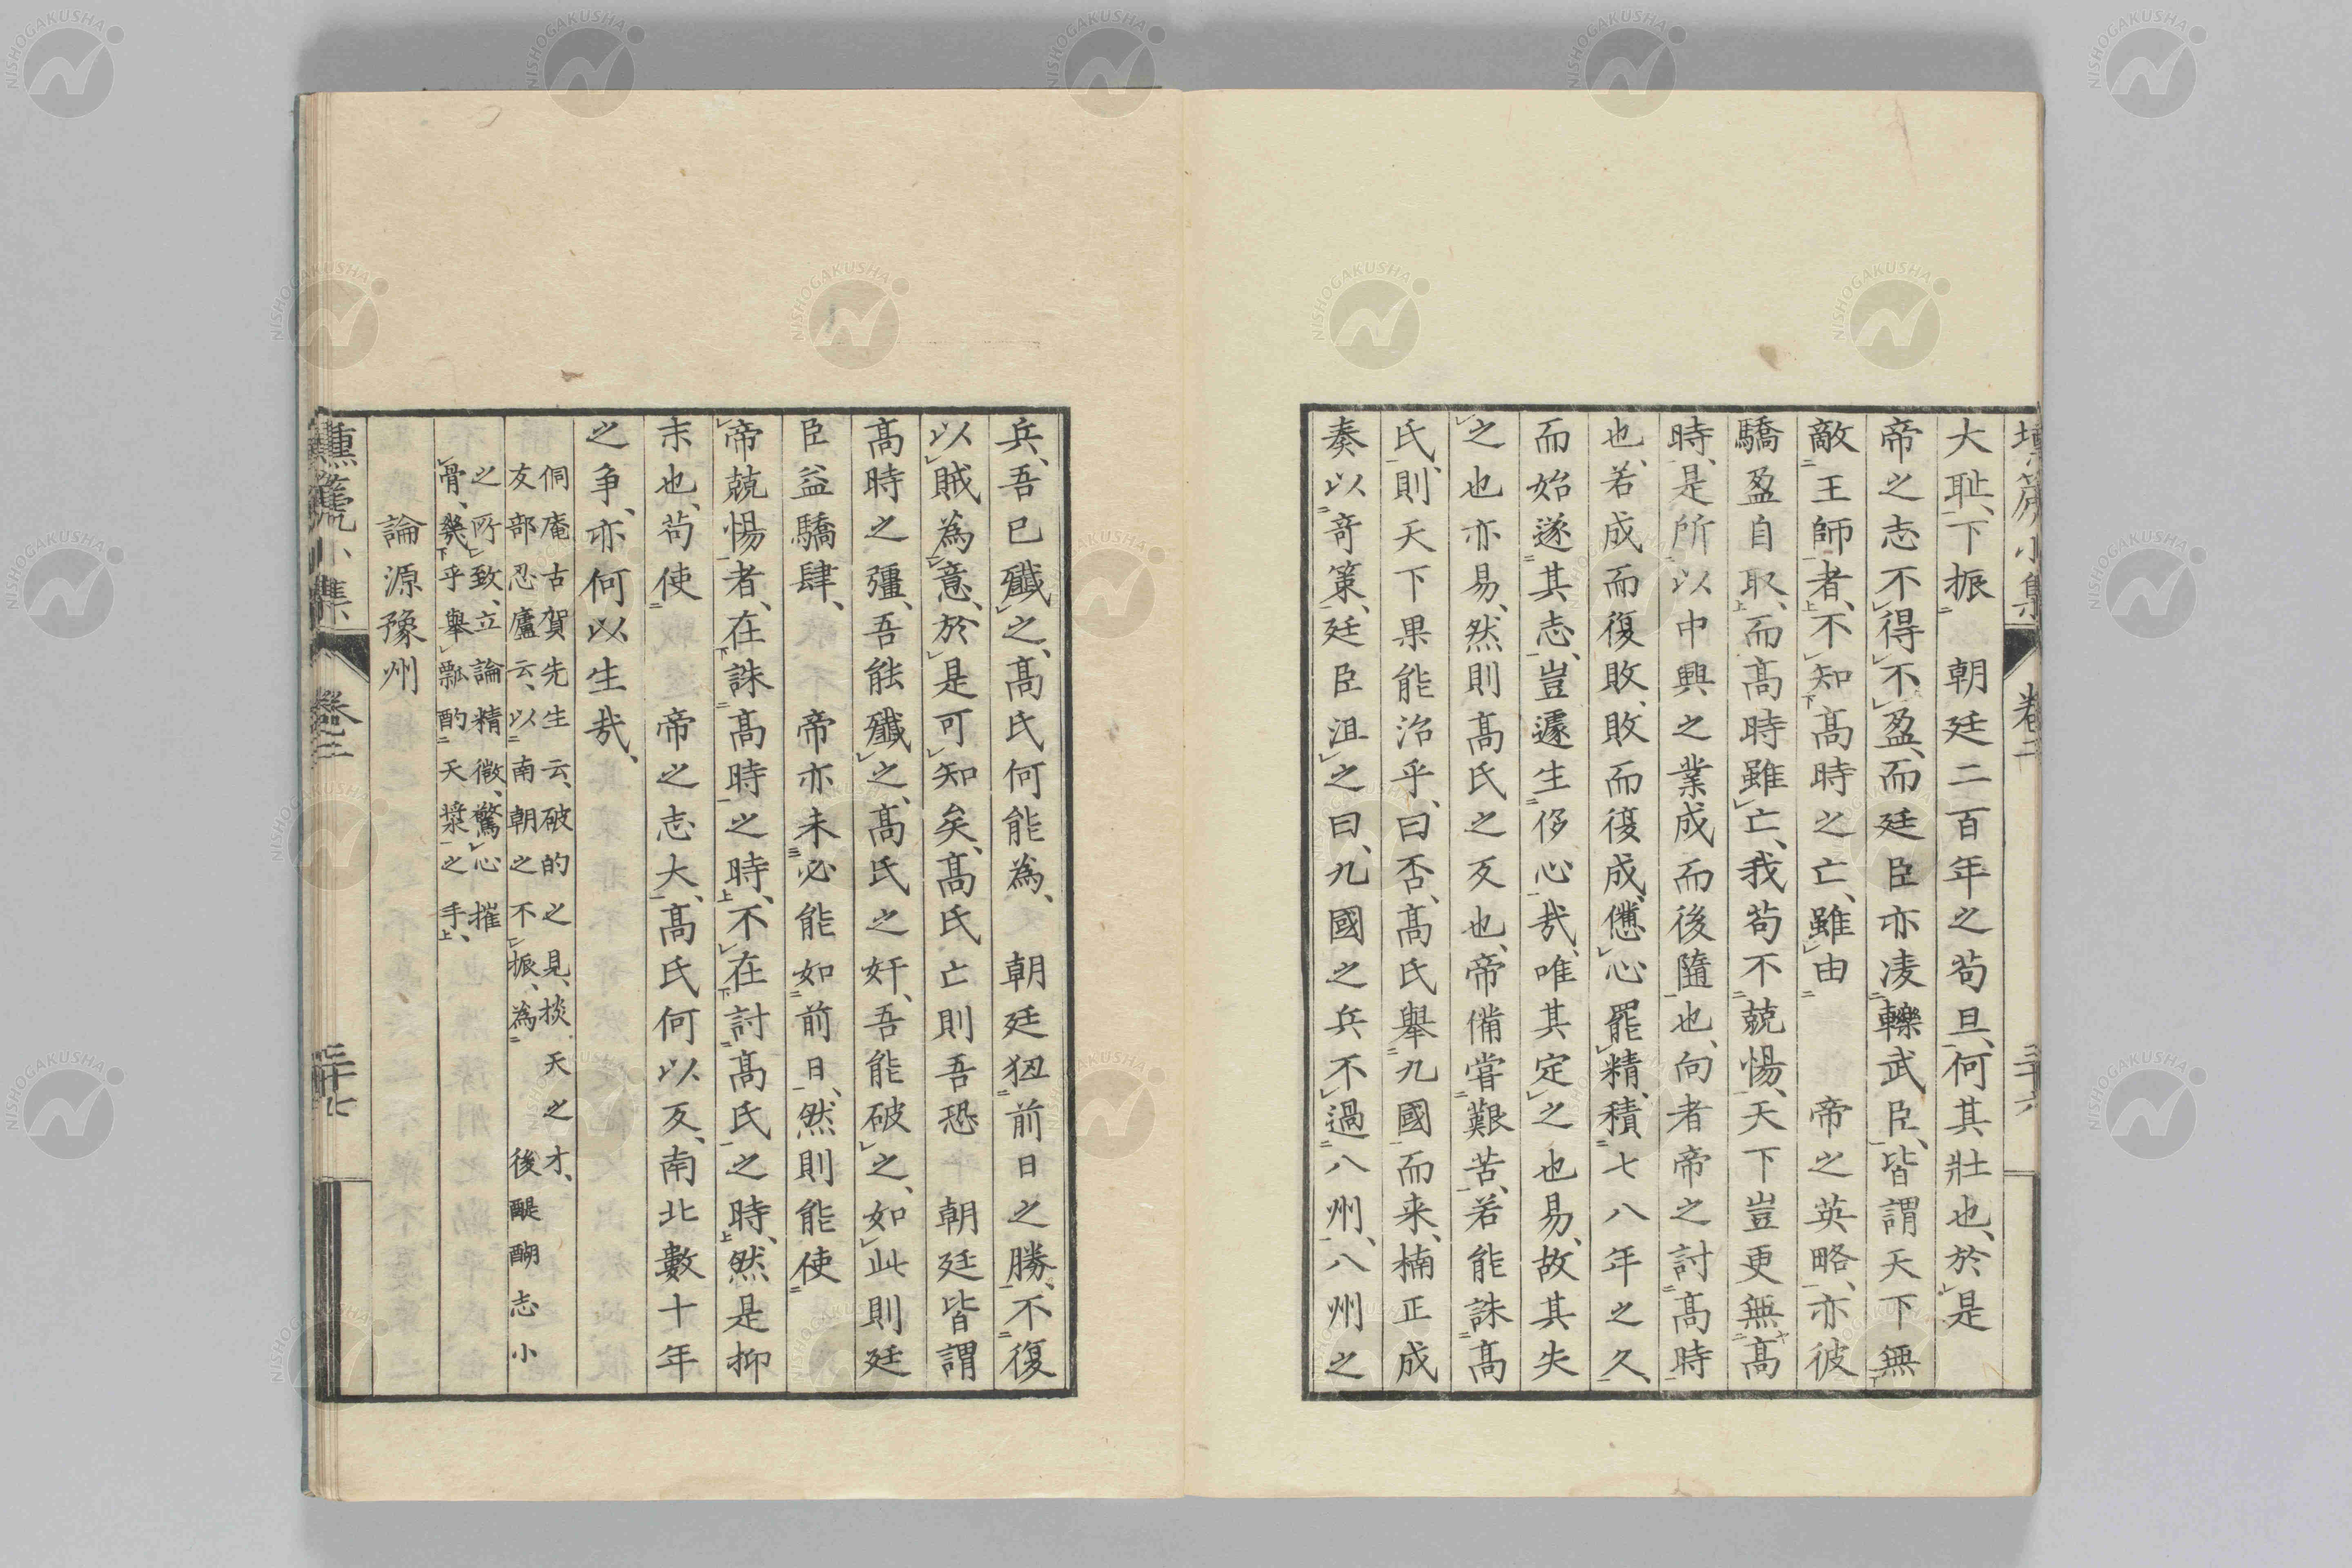 大恥、下振 朝廷二百年之苟且、何其壮也、於是
帝之志不得不盈、而廷臣亦凌轢武臣、皆謂天下無
敵王師者、不知高時之亡、雖由 帝之英略、亦彼
驕盈自取、而高時雖亡、我苟不兢惕、天下豈更無高
時、是所以中興之業成而後隨也、向者帝之討高時
也、若成而復敗、敗而復成、憊心罷精、積七八年之久、
而始遂其志、豈遽生侈心哉、唯其定之也易、故其失
之也亦易、然則高氏之反也、帝備嘗艱苦、若能誅高
氏、則天下果能治乎、曰否、高氏舉九國而来、楠正成
奏以奇策、廷臣沮之曰、九國之兵不過八州、八州之
兵、吾已殲之、高氏何能為、 朝廷狃前日之勝、不復
以賊為意、於是可知矣、高氏亡則吾恐 朝廷皆謂
高時之彊、吾能殲之、高氏之奸、吾能破之、如此則廷
臣益驕肆、 帝亦未必能如前日、然則能使
帝兢惕者、在誅高時之時、不在討高氏之時、然是抑
末也、苟使 帝之志大、高氏何以反、南北數十年
之争、亦何以生哉、
侗庵古賀先生云、破的之見、掞天之才、
友部忍廬云、以南朝之不振、為 後醍醐志小
之所致、立論精微、驚心摧
骨、糞乎舉瓢酌天漿之手、
論源豫州
塤篪小集 卷二 三十六
塤篪小集 卷二 三十七
NISHOGAKUSHA